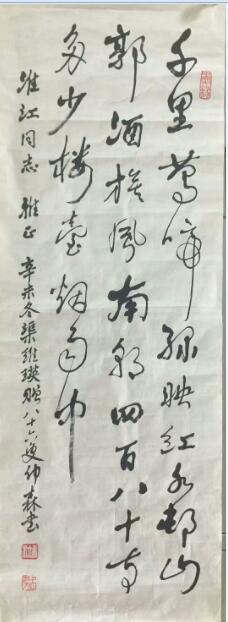 千里莺啼绿映红水邨山
郭酒旗风南朝四百八十寺
多少楼台烟雨中
淮红同志 雅正 辛未冬渠维瑛赠八十六叟仲森书